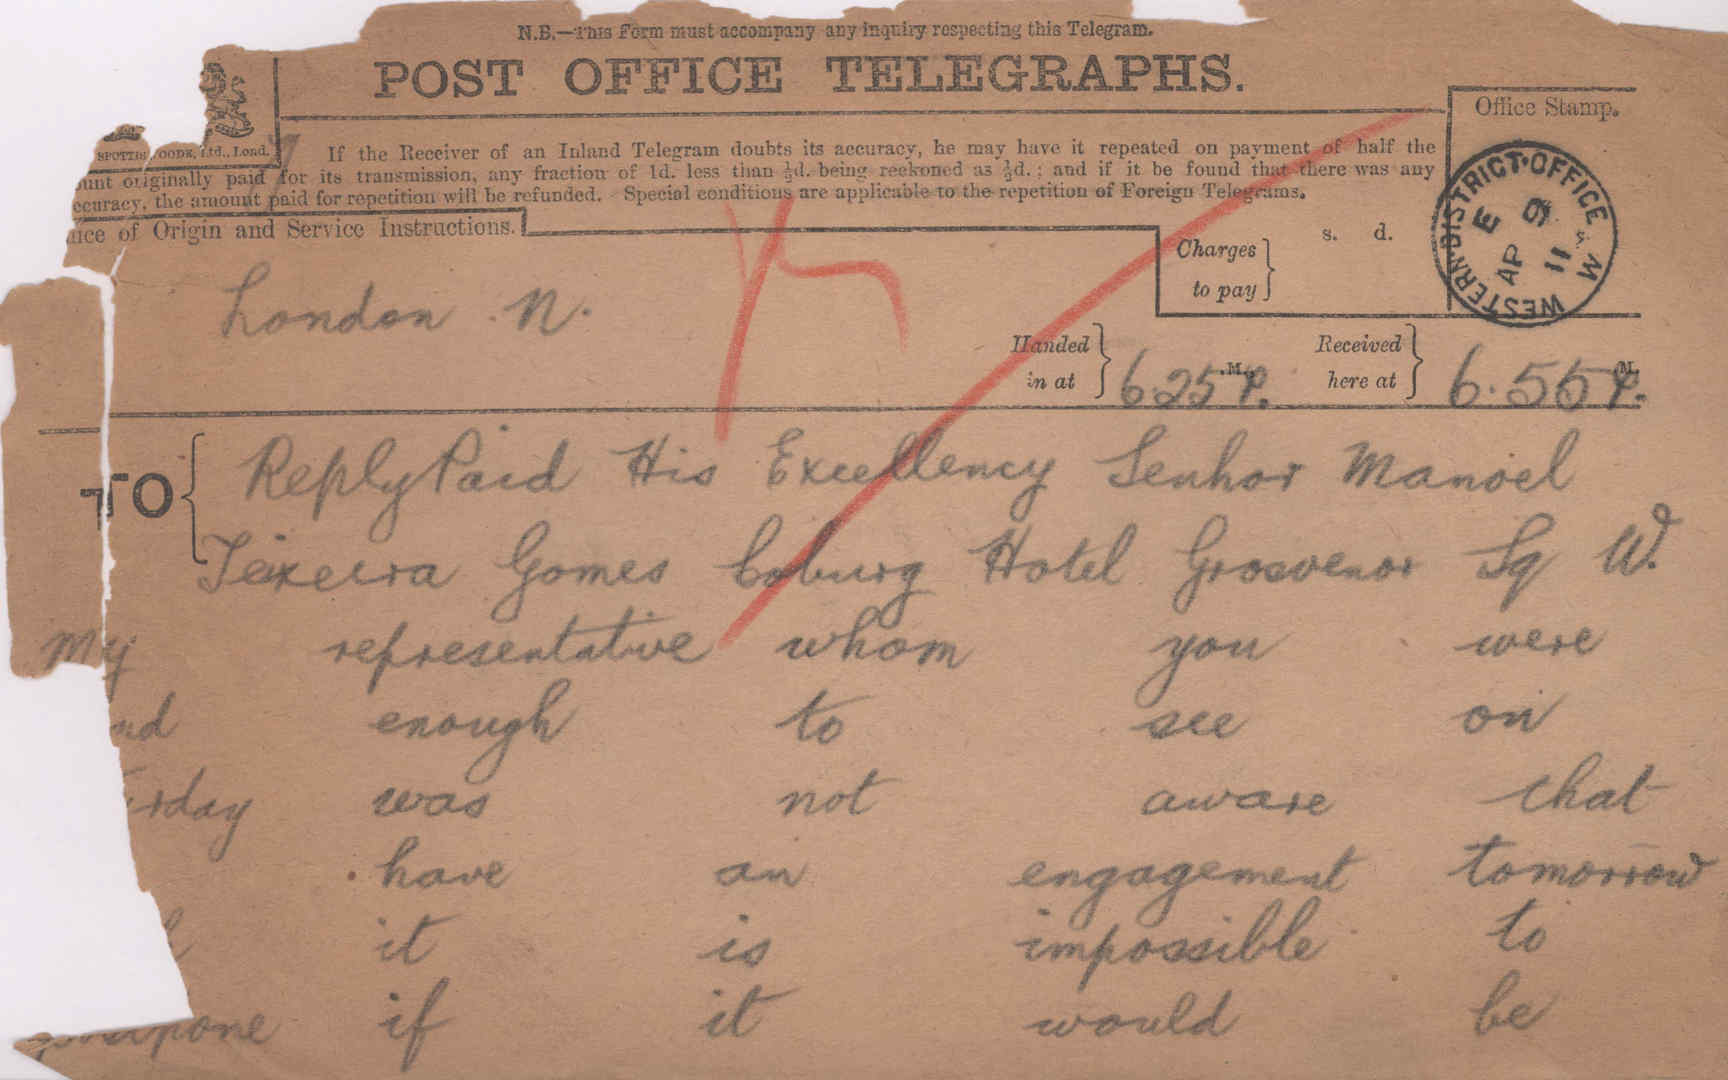 N.B.—This Form must accompany any inquiry respecting this Telegram.
POST OFFICE TELEGRAPHS.
Office Stamp.
SPOTTIS OODE, Ltd., Lond.
If the Receiver of an Inland Telegram doubts its accuracy, he may have it repeated on payment of half the
ount originally paid for its transmission, any fraction of 1d. less than ½d. being reckoned as ½d.; and if it be found that there was any
ccuracy, the amount paid for repetition will be refunded. Special conditions are applicable to the repetition of Foreign Telegrams.
WESTERN DISTRICT OFFICE W
E
9
AP
11
ice of Origin and Service Instructions.
Charges to pay
s. d.
London . N.
Handed in at
6.25 P. M.
Received here at
6.55 P. M.
TO
Reply Paid His Excellency Senhor Manoel
Teixeira Gomes Coburg Hotel Grosvenor Sq W.
My representative whom you were
nd enough to see on
rday was not aware that
have an engagement tomorrow
it is impossible to
pone if it would be